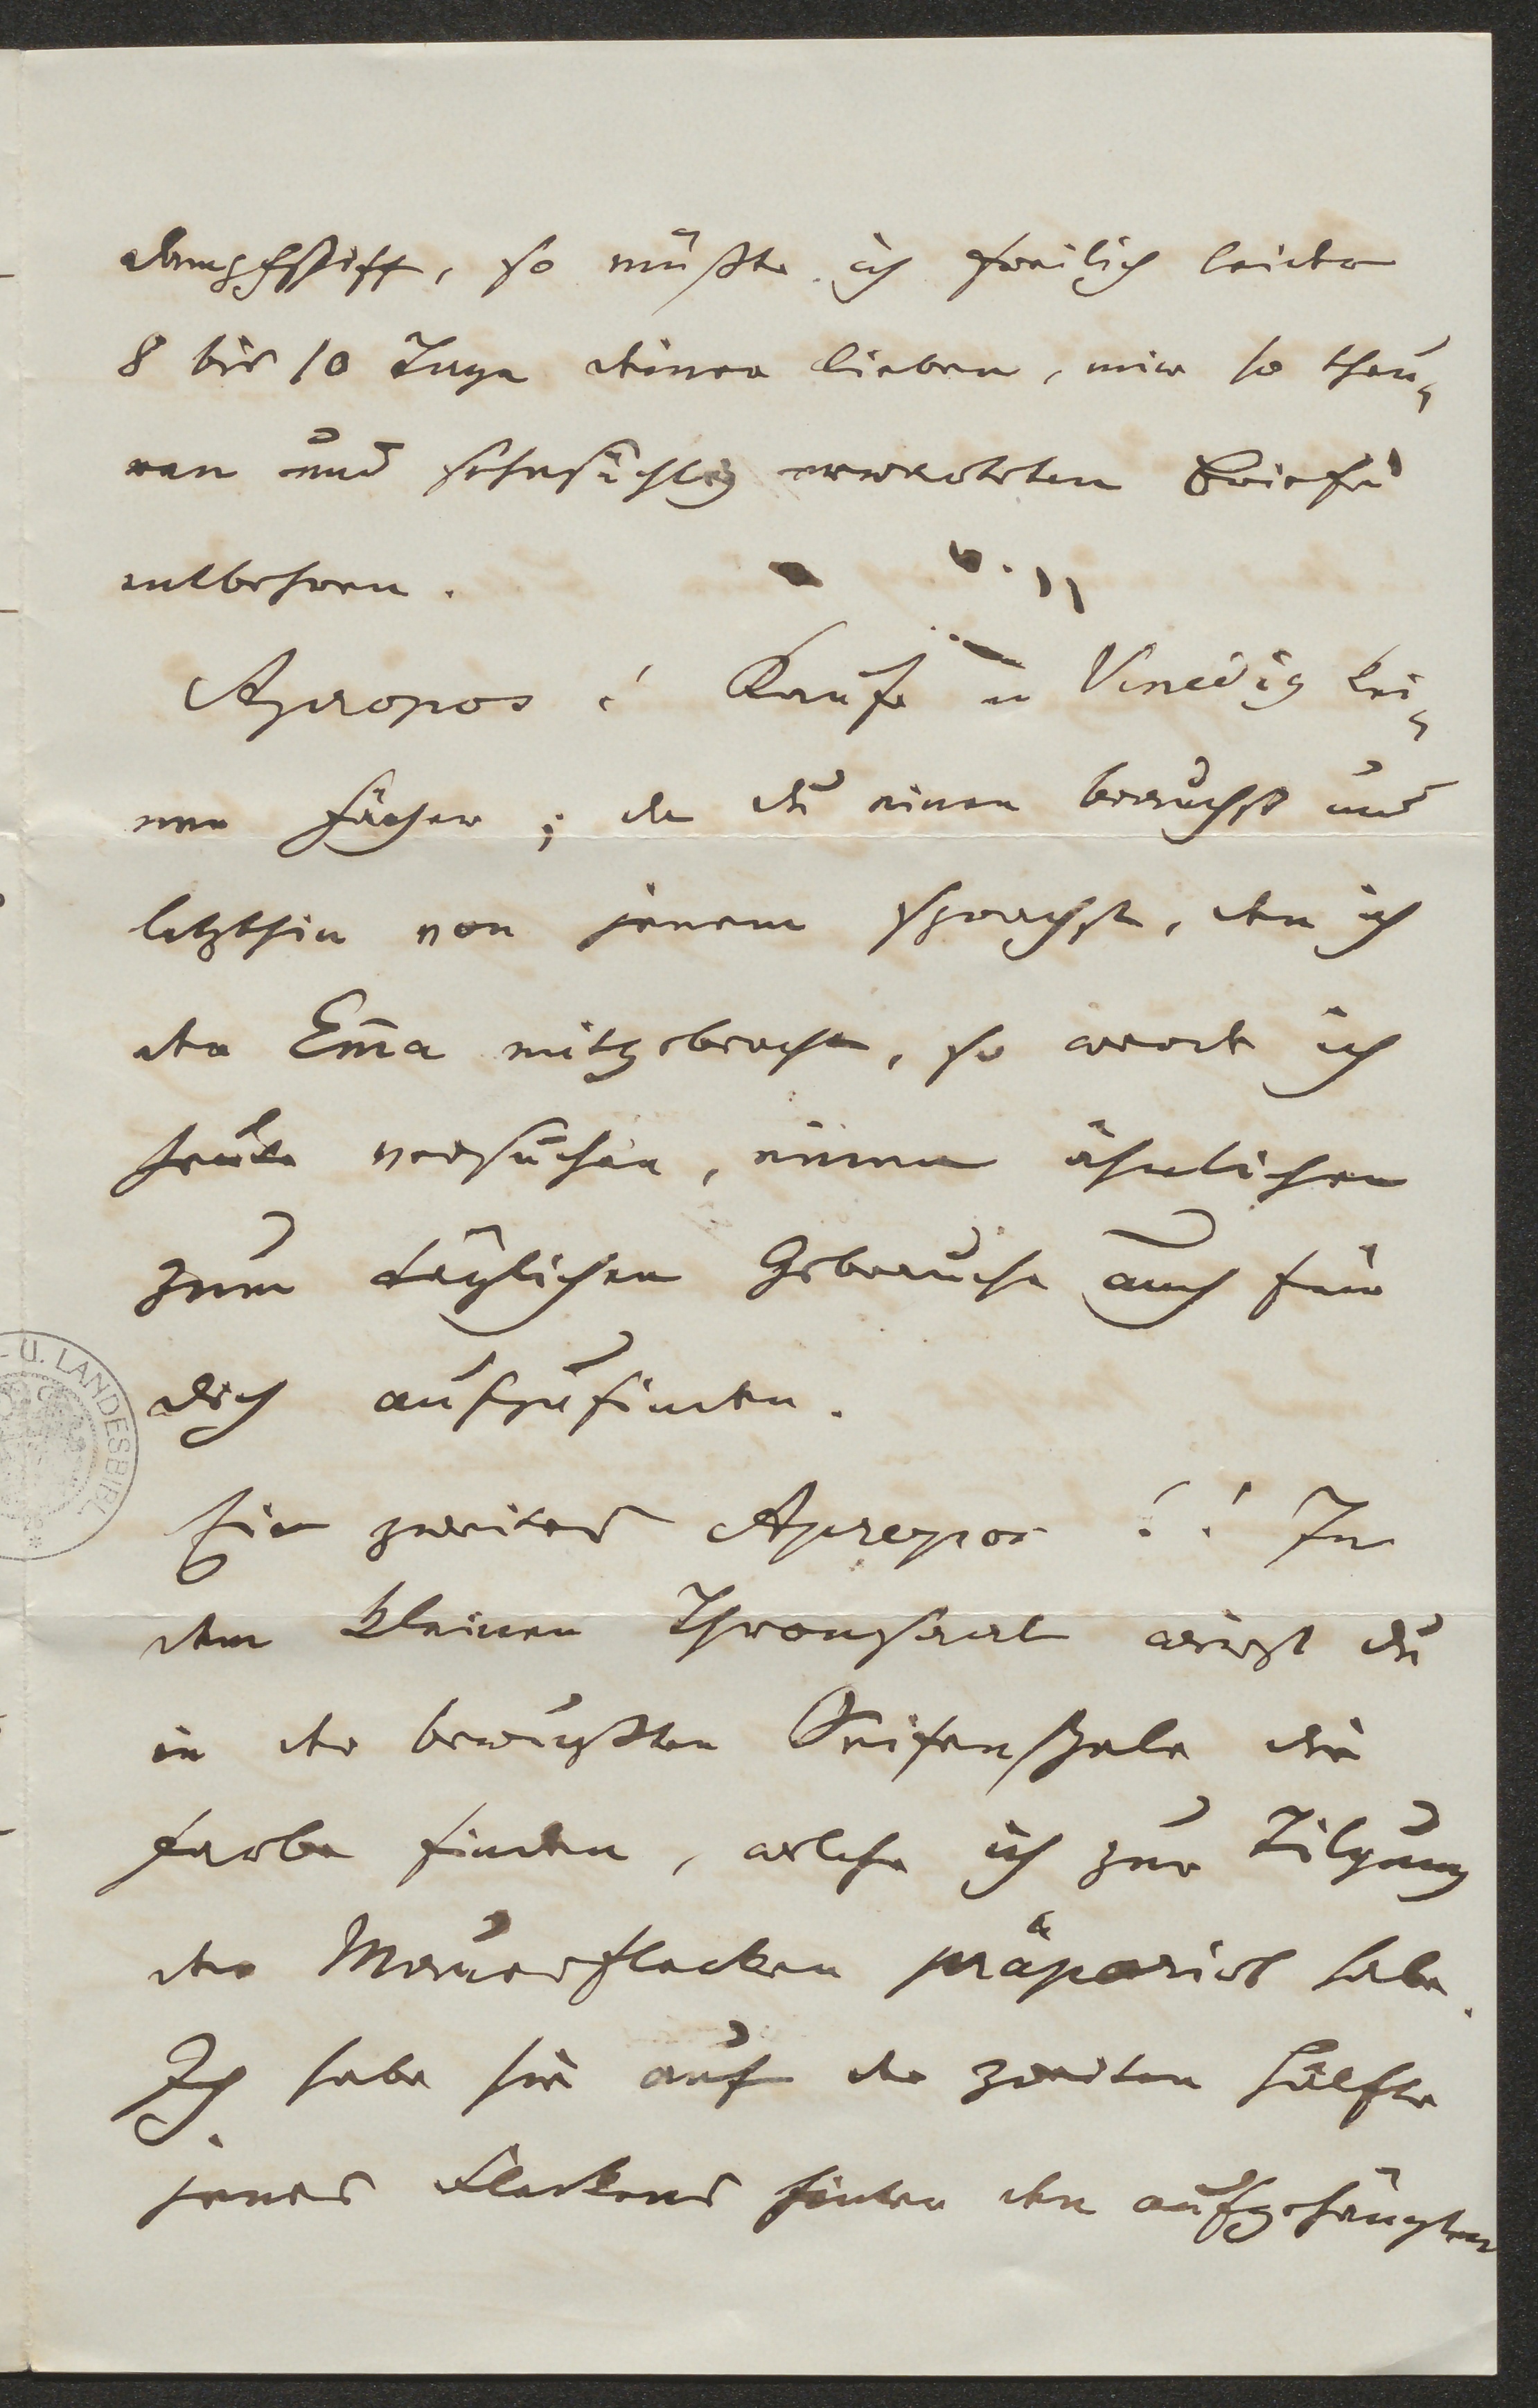 dampfschiff, so müßte ich freilich leider
8 bis 10 Tage deiner lieben, mir so theu¬
ren und sehnsüchtig erwarteten Briefe
entbehren.
Apropos! Kaufe in Venedig kei¬
nen Fächer; da du einen brauchst und
letzthin von jenem sprachst, den ich
der Em̄a mitgebracht, so werde ich
heute versuchen, einen ähnlichen
zum täglichen Gebrauche auch für
dich aufzufinden.
Ein zweites Apropos!! In
dem kleinen Thronsaal wirst du
in der bewußten Seifenschale die
Farbe finden, welche ich zur Tilgung
der Mauerflecken präparirt habe.
Ich habe sie auf der zweiten Hälfte
jenes Fleckens hinter den aufgehängten
U. LANDESBIBL